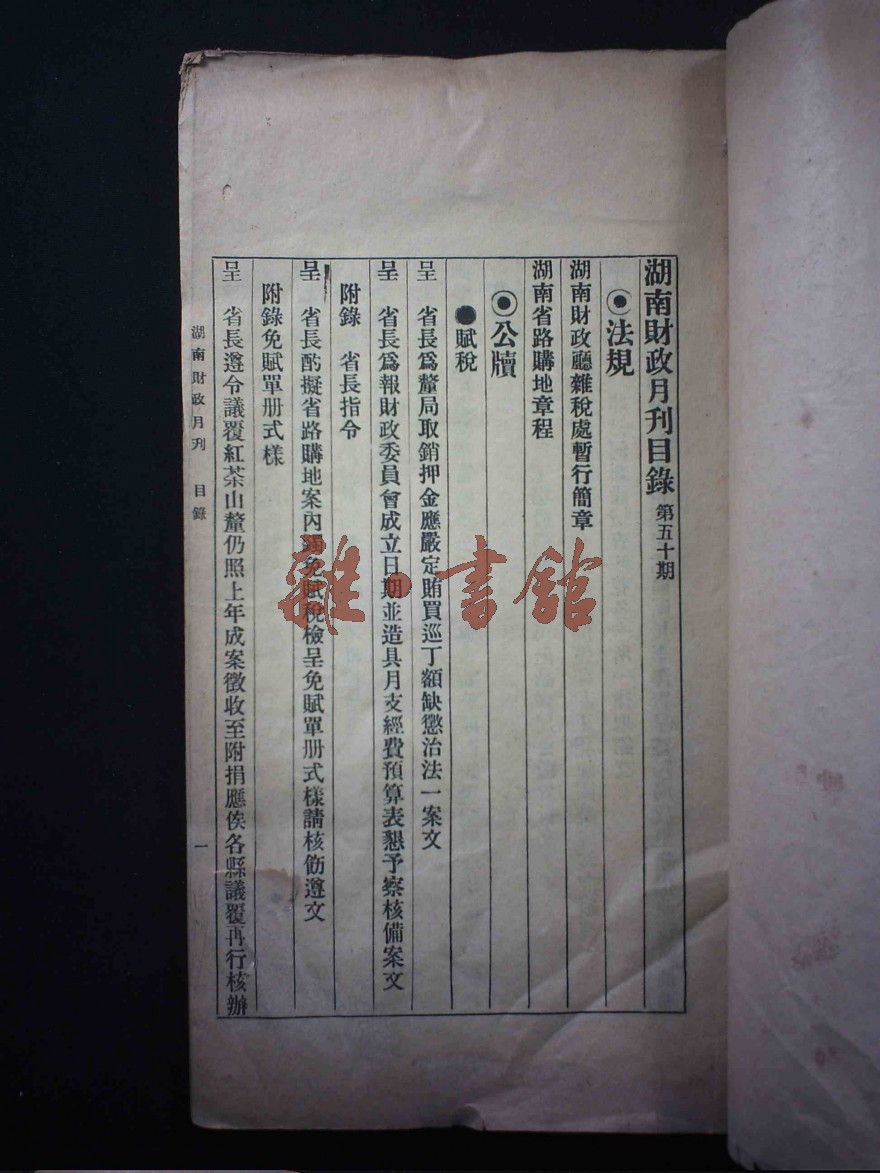 湖南財政月刊目錄 第五十期
◉法規
湖南財政廳雜稅處暫行簡章
湖南省路購地章程
◉公牘
●賦稅
呈 省長爲釐局取銷押金應嚴定賄買巡丁額缺懲治法一案文
呈 省長爲報財政委員會成立日期並造具月支經費預算表懇予察核備案文
附錄 省長指令
呈 省長酌擬省路購地案內蠲免賦稅檢呈免賦單册式樣請核飭遵文
附錄免賦單册式樣
呈 省長遵令議覆紅茶山釐仍照上年成案徵收至附捐應俟各縣議覆再行核辦
湖南財政月刊 目錄
一
雜·書館